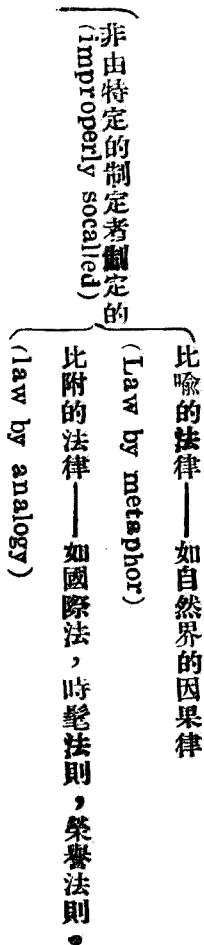 非由特定的制定者制定的
(improperly socalled)
比喩的法律——如自然界的因果律
(Law by metaphor)
比附的法律——如國際法，時髦法則，榮譽法則。
(law by analogy)